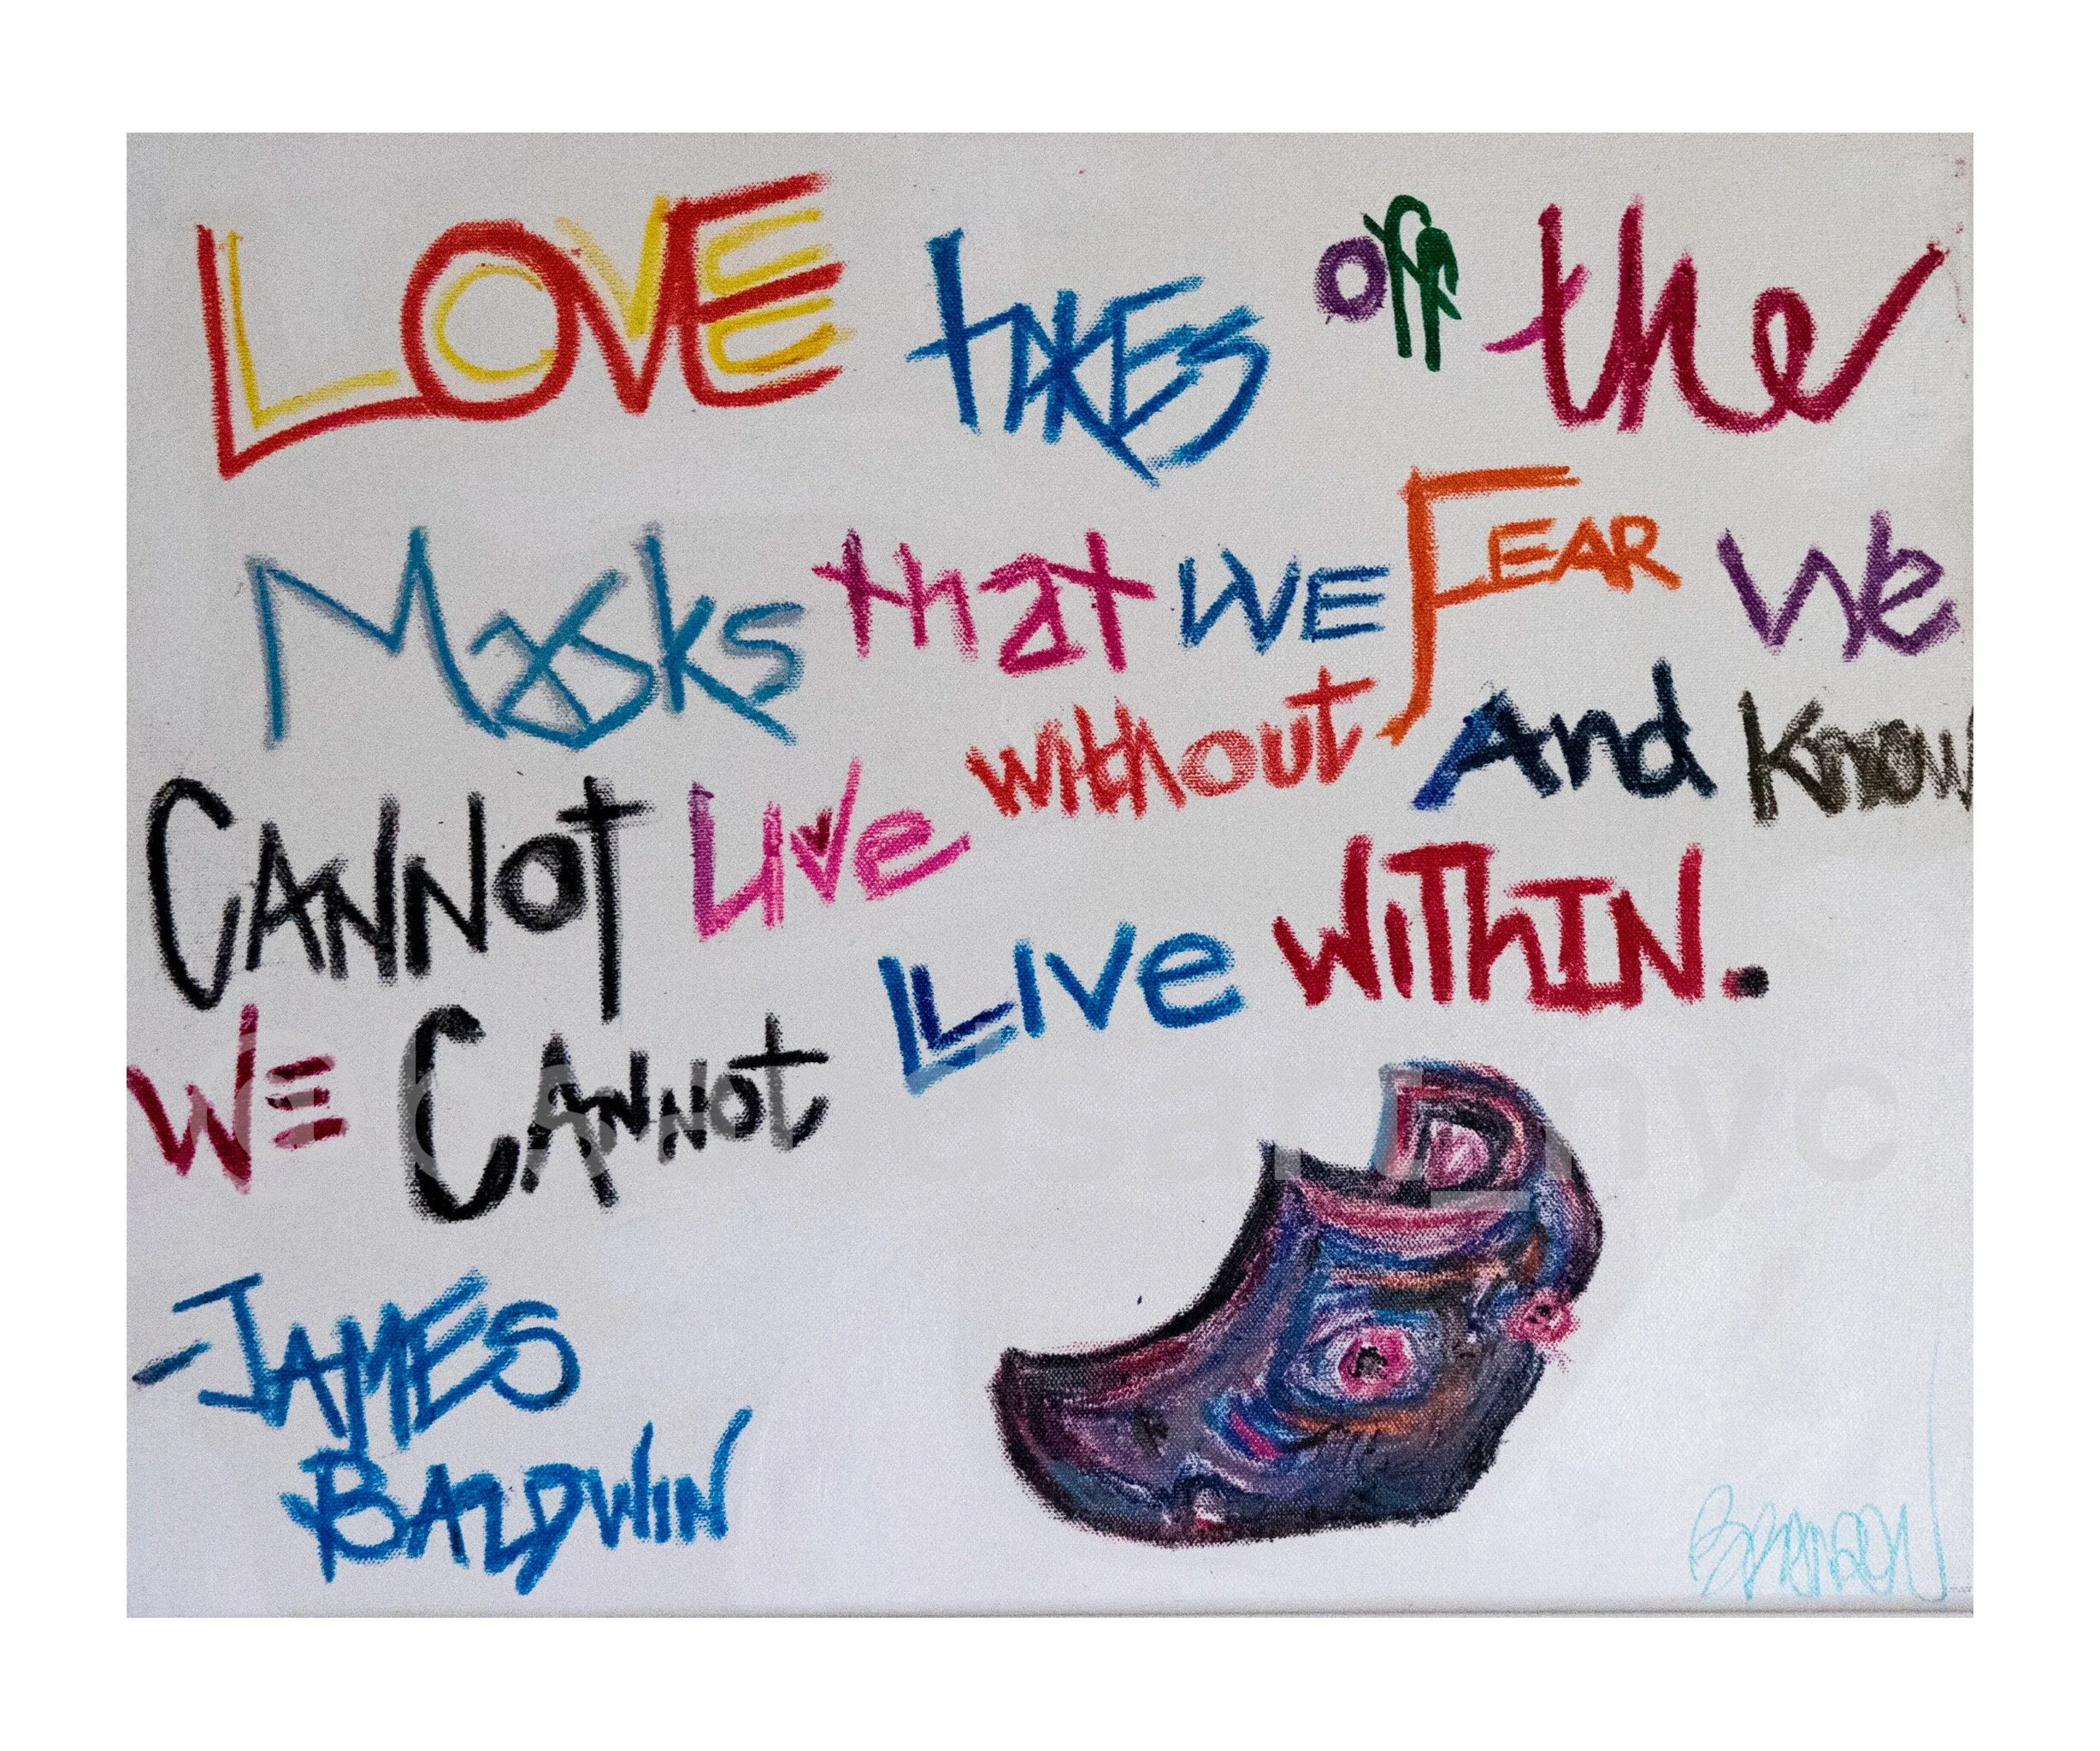 LOVE TAKES off the
MASKS that WE FEAR We
CANNOT LIve without And Know
WE CANNOT LIve WIThIN.
-JAMES
BALDWIN
BRANDON